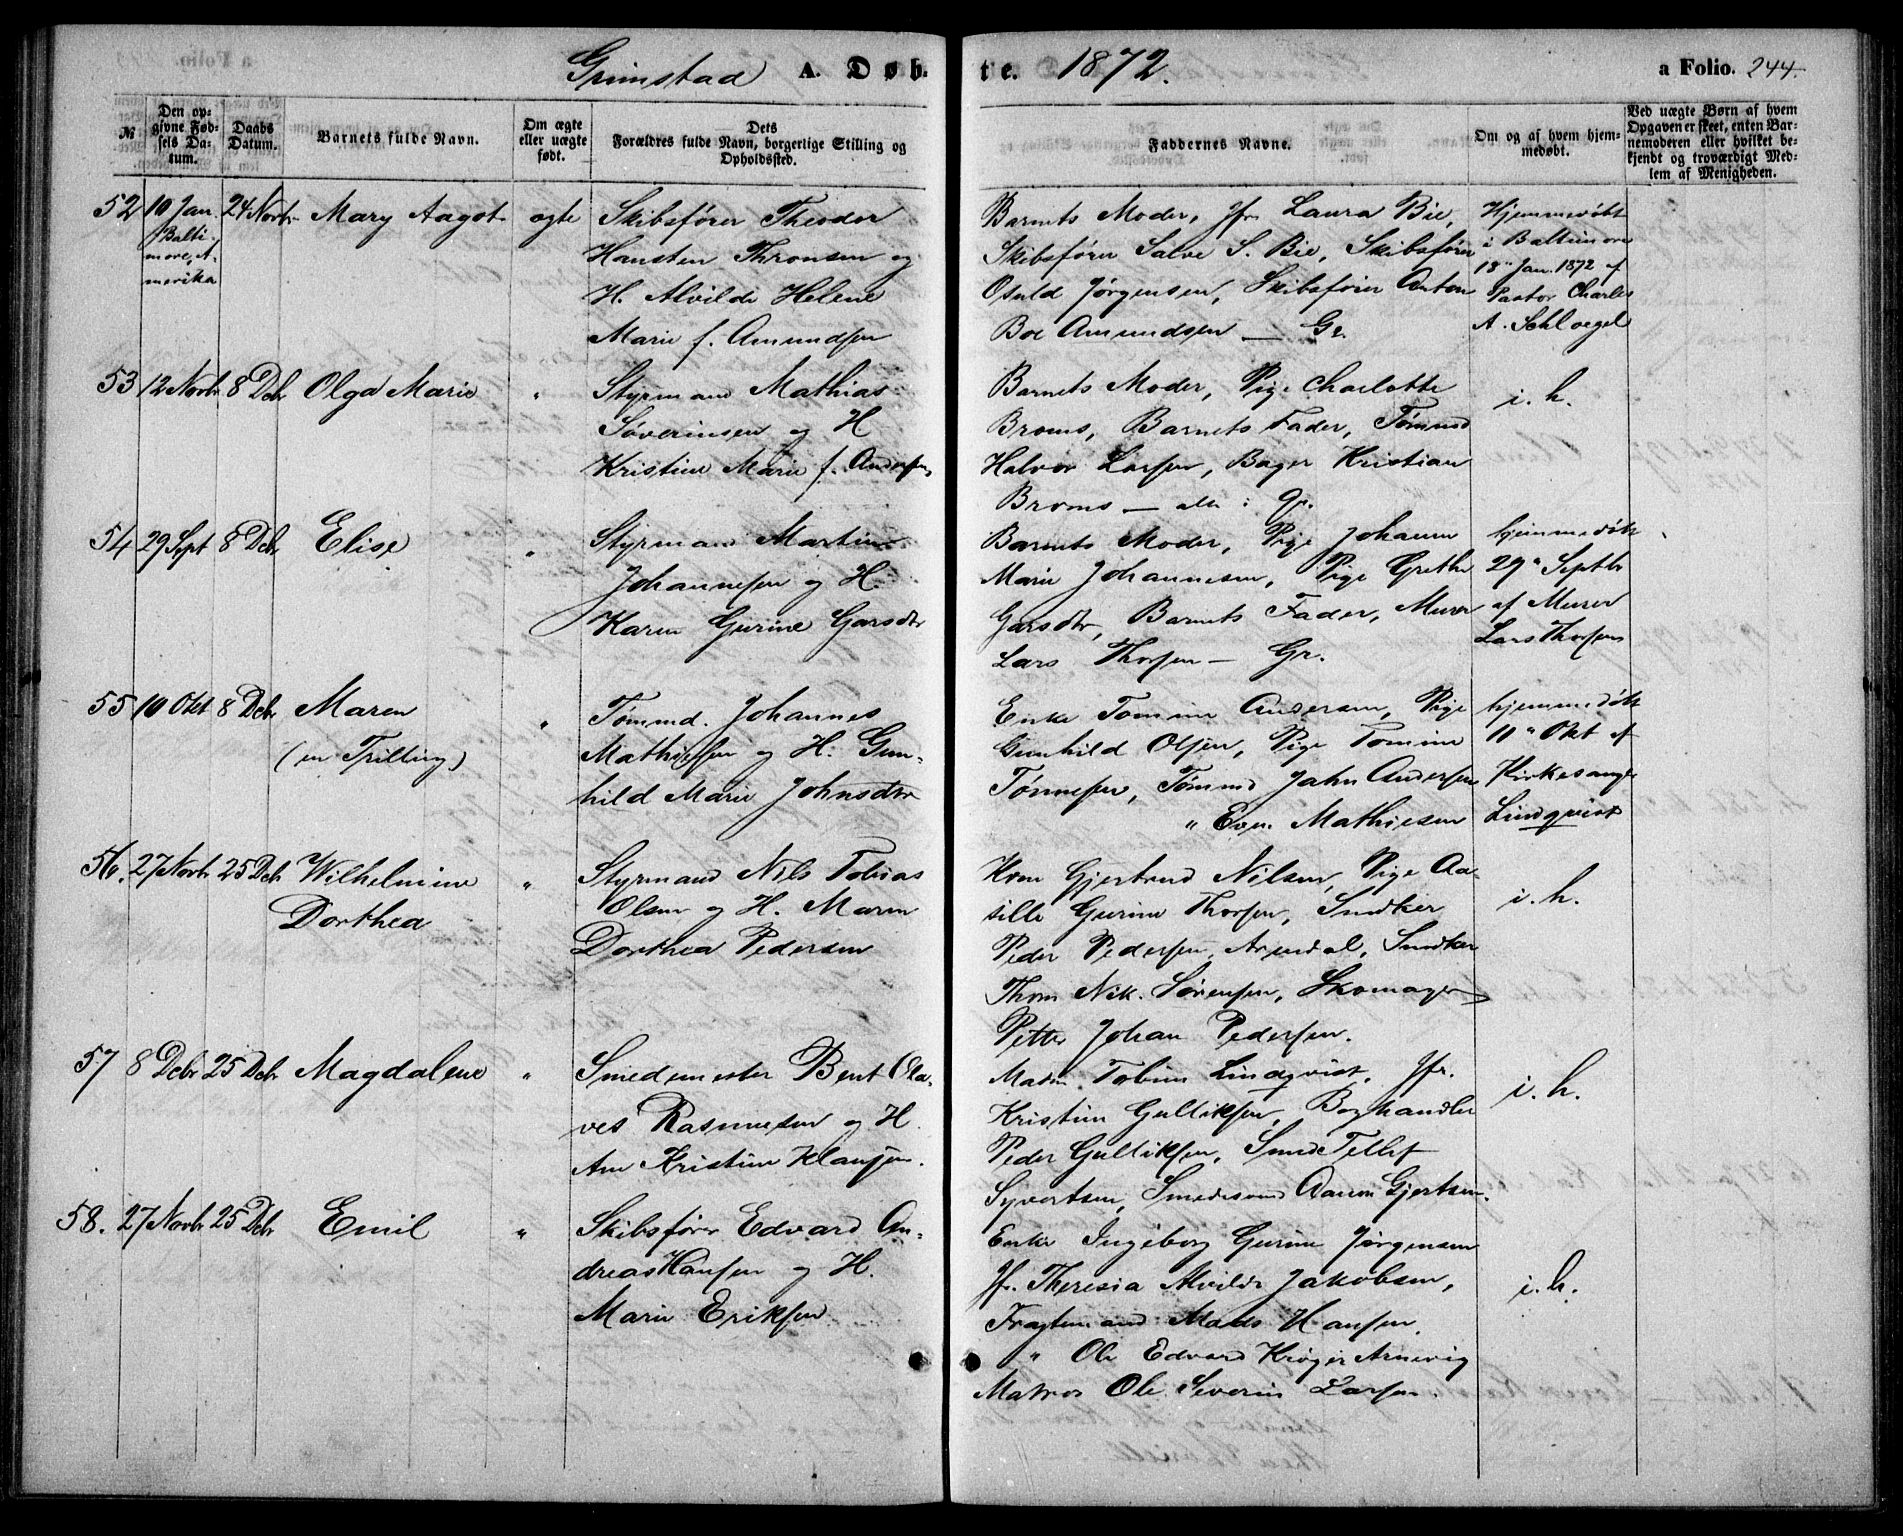 Grimstad A. Døbte. 1872. a Folio. 244.
№
Den opgivne Fødsels Datum.
Daabs Datum.
Barnets fulde Navn.
Om ægte eller uægte født.
Dets Forældres fulde Navn, borgerlige Stilling og Opholdssted.
Faddernes Navne.
Om og af hvem hjemmedøbt.
Ved uægte Børn af hvem Opgaven er skeet, enten Barnemoderen eller hvilket bekjendt og troværdigt Medlem af Menigheden.
52 10 Jan. Baltimore, Amerika 24 Novbr Mary Aagot ægte
Skibsfører Theodor
Hansten Thronsen og
H. Alvilde Helene
Marie f. Amundsen
Barnets Moder, Jfr. Laura Bie,
Skibsfører Salve S. Bie, Skibsfører
Osuld Jørgensen, Skibsfører Anton
Boe Amundsen — Gr.
Hjemmedøbt
i Baltimore
18" Jan. 1872 af
Pastor Charles
A. Schloegel
53 12 Novbr 8 Debr Olga Marie "
Styrmand Mathias
Søverinsen og H
Kristine Marie f. Andersen
Barnets Moder, Pige Charlotte
Broms, Barnets Fader, Tømmd
Halvor Larsen, Bager Kristian
Broms — alle i Gr.
i. h.
54 29 Sept 8 Debr Elise "
Styrmand Martin
Johannesen og H.
Karen Gurine Garsdtr
Barnets Moder, Pige Johanne
Marie Johannesen, Pige Grethe
Garsdtr, Barnets Fader, Murer
Lars Thorsen — Gr.
hjemmedøbt
29" Septbr
af Murer
Lars Thorsen
55 10 Okt 8 Debr Maren "
(en Trilling)
Tømmd. Johannes
Mathiesen og H. Gun-
hild Marie Johnsdtr
Enke Tomine Andersen, Pige
Gunhild Olsen, Pige Tomine
Tønnesen, Tømmd Jahn Andersen
" Even Mathiesen
hjemmedøbt
11" Okt af
Kirkesanger
Lindqvist
56. 27 Novbr 25 Debr Wilhelmine "
Dorthea
Styrmand Nils Tobias
Olsen og H. Maren
Dorthea Pedersen
Kone Gjertrud Nilsen, Pige Aa-
sille Gurine Thorsen, Snedker
Peder Pedersen, Arendal, Snedker
Thom Nik. Sørensen, Skomager
Petter Johan Pedersen.
i. h.
57 8 Debr 25 Debr Magdalene "
Smedemester Bent Ola-
ves Rasmussen og H.
Ane Kristine Klausen.
Madm. Tobine Lindqvist, Jfr.
Kristine Gulliksen, Boghandler
Peder Gulliksen, Smed Tellef
Syvertsen, Smedesvend Aanon Gjertsen.
i. h.
58. 27 Novbr 25 Debr Emil "
Skibsfører Edvard An-
dreas Hansen og H.
Marie Eriksen
Enke Ingeborg Gurine Jørgensen
Jfr. Theresia Alvilde Jakobsen,
Fragtemand Mads Hansen,
" Ole Edvard Krøger Arnevig
Matros Ole Severin Larsen.
i. h.